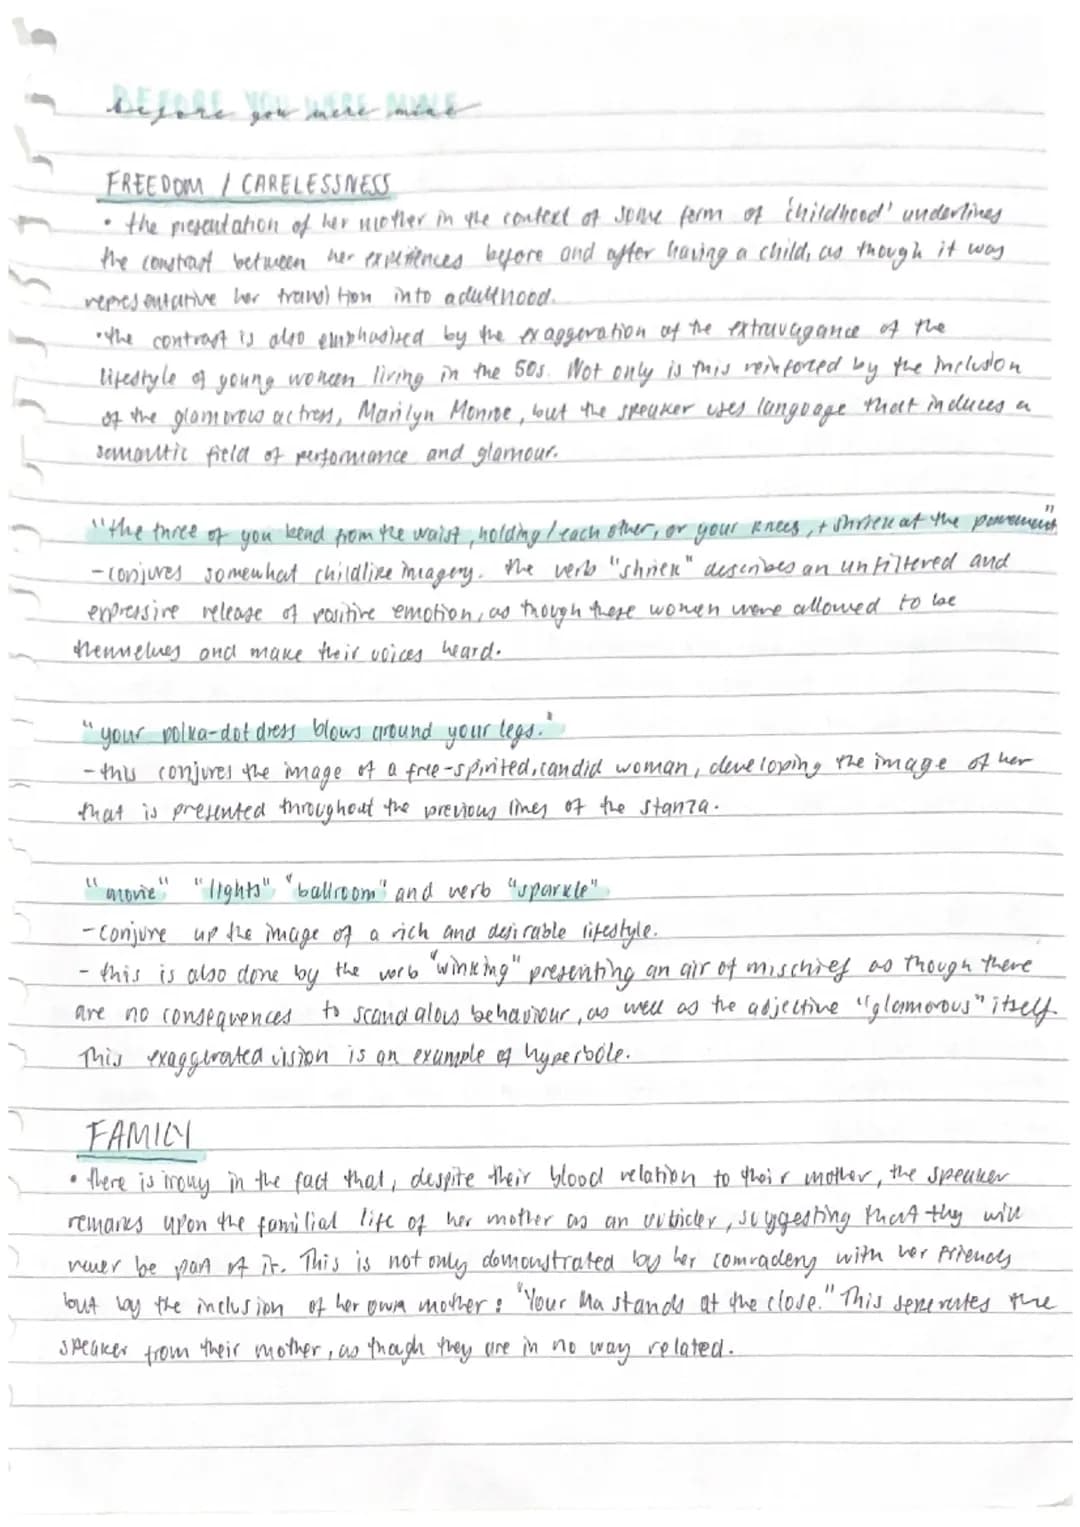 BEFORE YOU WERE MINE
before you were mine
FREEDOM / CARELESSNESS
• the presentation of her mother in the context of some form of 'childhood' underlines
the contrast between her experiences before and after having a child, as though it was
representative her transition into adulthood.
• the contrast is also emphasised by the exaggeration of the extravagance of the
lifestyle of young women living in the 50s. Not only is this reinforced by the inclusion
of the glamorous actress, Marilyn Monroe, but the speaker uses language that induces a
semantic field of performance and glamour.
"the three of you bend from the waist, holding / each other, or your knees, + shriek at the pavement"
- conjures somewhat childlike imagery. The verb "shriek" describes an unfiltered and
expressive release of positive emotion, as though these women were allowed to be
themselves and make their voices heard.
"your polka-dot dress blows around your legs."
- this conjures the image of a free-spirited, candid woman, developing the image of her
that is presented throughout the previous lines of the stanza.
"movie" "lights" "ballroom" and verb "sparkle"
- conjure up the image of a rich and desirable lifestyle.
- this is also done by the verb "winking" presenting an air of mischief as though there
are no consequences to scandalous behaviour, as well as the adjective "glamorous" itself.
This exaggerated vision is an example of hyperbole.
FAMILY
• there is irony in the fact that, despite their blood relation to their mother, the speaker
remarks upon the familial life of her mother as an , suggesting that they will
never be part of it. This is not only demonstrated by her comradery with her friends
but by the inclusion of her own mother: "Your Ma stands at the close." This seperates the
speaker from their mother, as though they are in no way related.